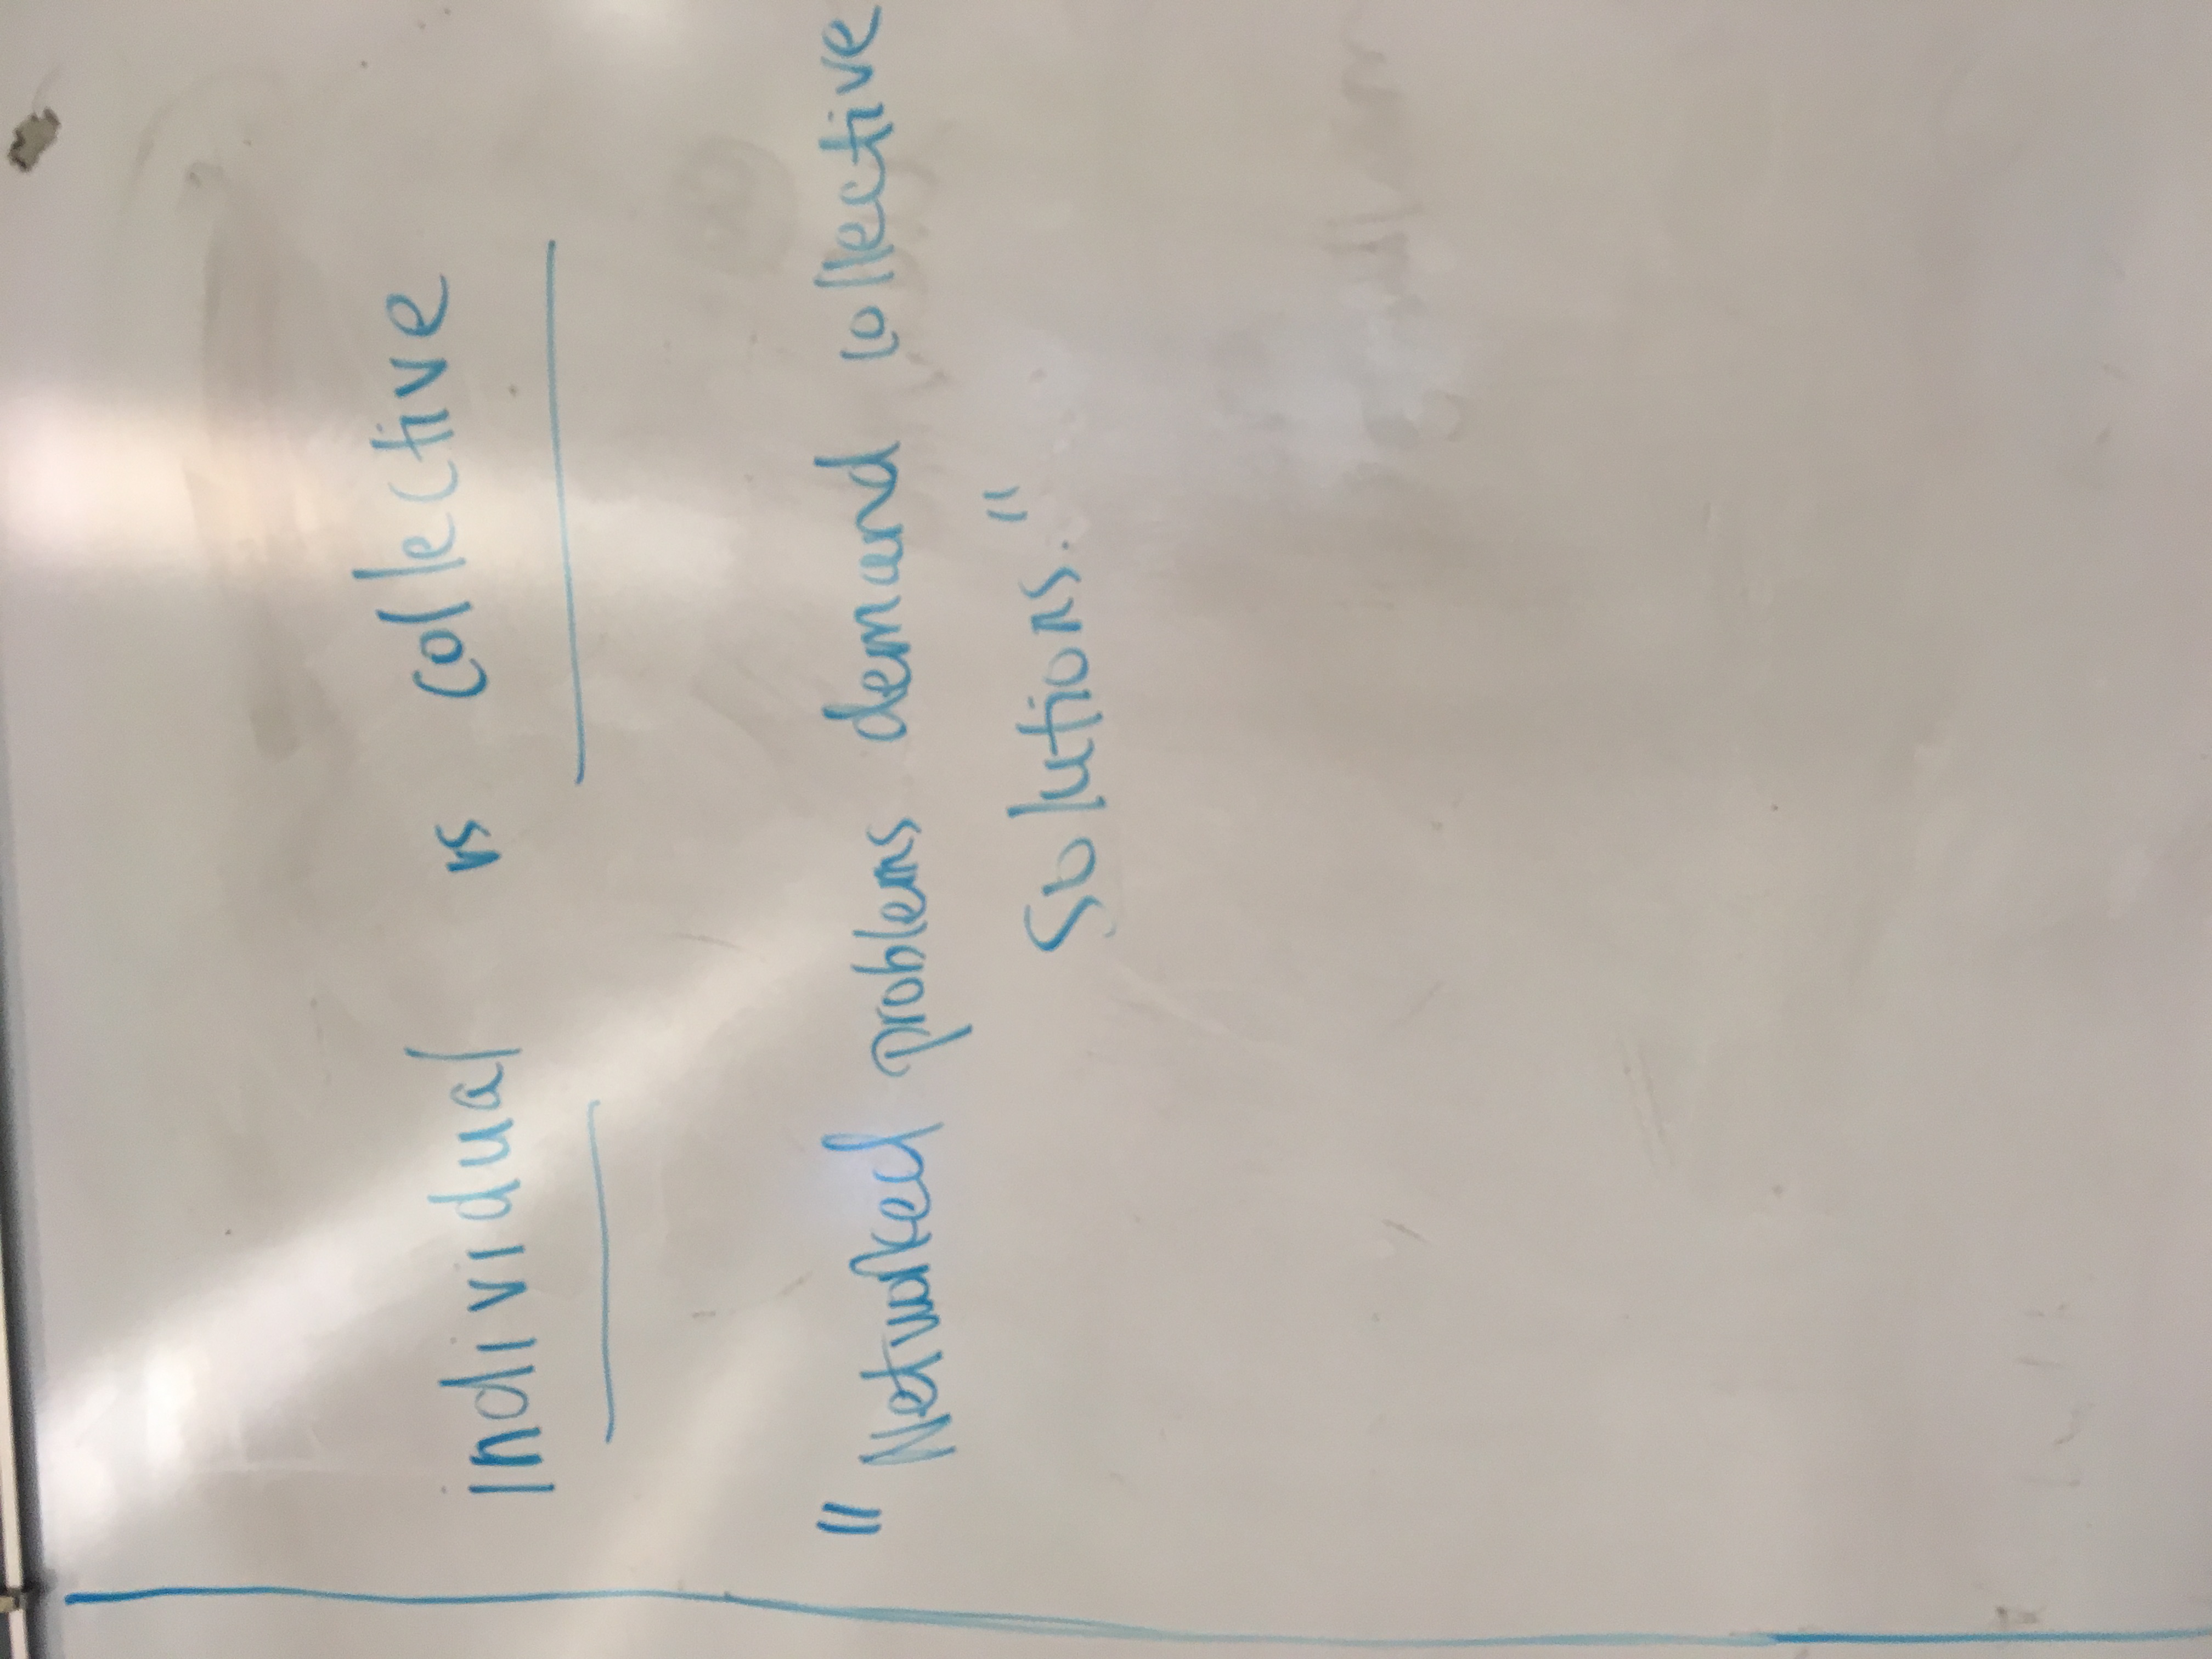 individual vs collective
"Networked problems demand collective
solutions."